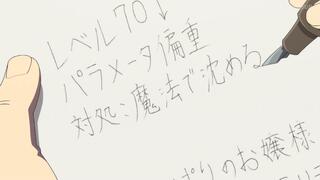 レベル70↓
パラメータ偏重
対処:魔法で沈める
ぱりのお嬢様